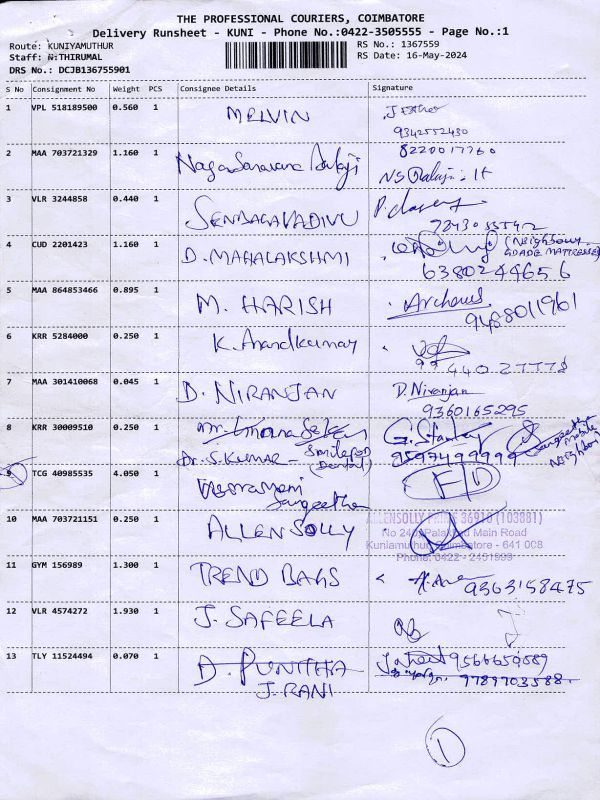 THE PROFESSIONAL COURIERS, COIMBATORE
Delivery Runsheet - KUNI - Phone No.:0422-3505555 - Page No.:1
Route: KUNIYAMUTHUR RS No.: 1367559
Staff: N.THIRUMAL RS Date: 16-May-2024
DRS No.: DCJB136755901
S No Consignment No Weight PCS Consignee Details Signature
1 VPL 518189500 0.560 1 MELVIN
9342552430
2 MAA 703721329 1.160 1 8220017760
NS Balaji
3 VLR 3244858 0.440 1 SENBAGAVADIVU
4 CUD 2201423 1.160 1 D. MAHALAKSHMI (Neighbour
6380244656
5 MAA 864853466 0.895 1 M. HARISH
9488011961
6 KRR 5284000 0.250 1 K. Anandkumar
7 MAA 301410068 0.045 1 D. NIRANJAN D. Niranjan
9360165295
8 KRR 30009510 0.250 1 G. Stanley
Dr. S. KUMAR - Smile 9597499999
(Dental)
9 TCG 40985535 4.050 1
Sangeetha
10 MAA 703721151 0.250 1 ALLEN SOLLY ALLENSOLLY
Main Road
Coimbatore - 641 008
Phone: 0422 -
11 GYM 156989 1.300 1 TREND BAGS 9363158475
12 VLR 4574272 1.930 1 J. SAFEELA
13 TLY 11524494 0.070 1 D. PUNITHA
J. RANI 9789703588
1